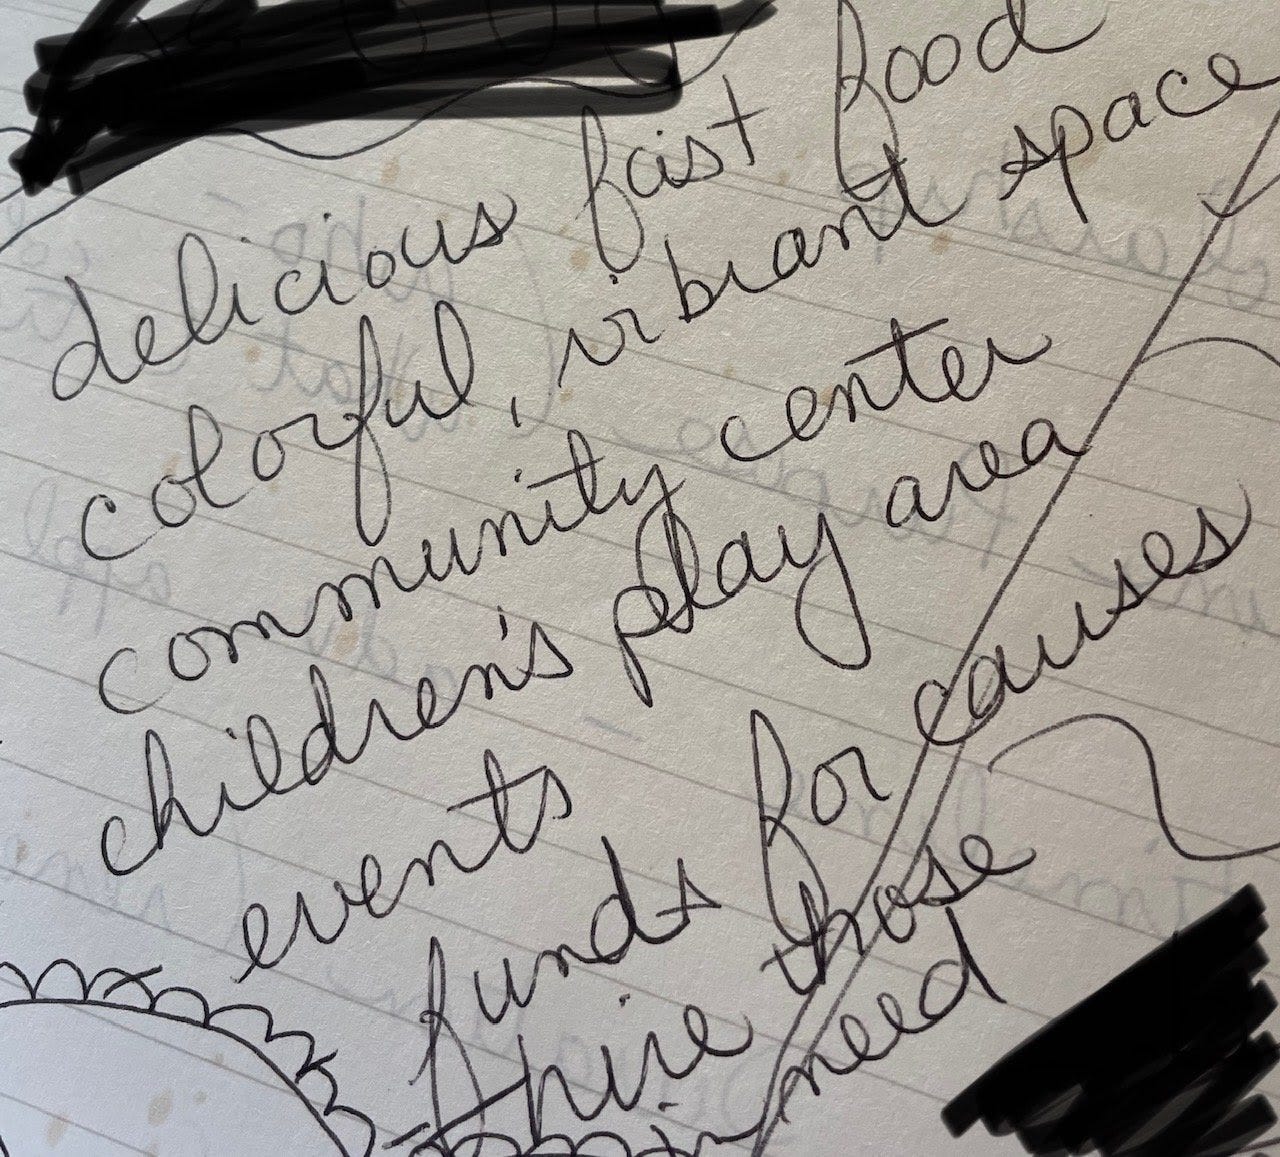 delicious fast food
colorful, vibrant space
community center
children's play area
events
funds for causes
hire those
in need